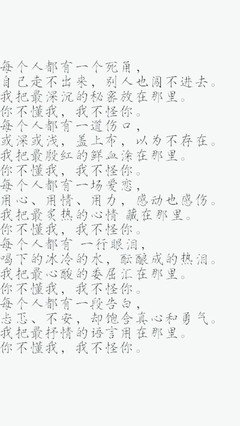 每个人都有一个死角，
自己走不出来，别人也闯不进去。
我把最深沉的秘密放在那里。
你不懂我，我不怪你。
每个人都有一道伤口，
或深或浅，盖上布，以为不存在。
我把最殷红的鲜血涂在那里。
你不懂我，我不怪你。
每个人都有一场爱恋，
用心、用情、用力，感动也感伤。
我把最炙热的心情 藏在那里。
你不懂我，我不怪你。
每个人都有 一行眼泪，
喝下的冰冷的水，酝酿成的热泪。
我把最心酸的委屈汇在那里。
你不懂我，我不怪你。
每个人都有一段告白，
忐忑、不安，却饱含真心和勇气。
我把最抒情的语言用在那里。
你不懂我，我不怪你。